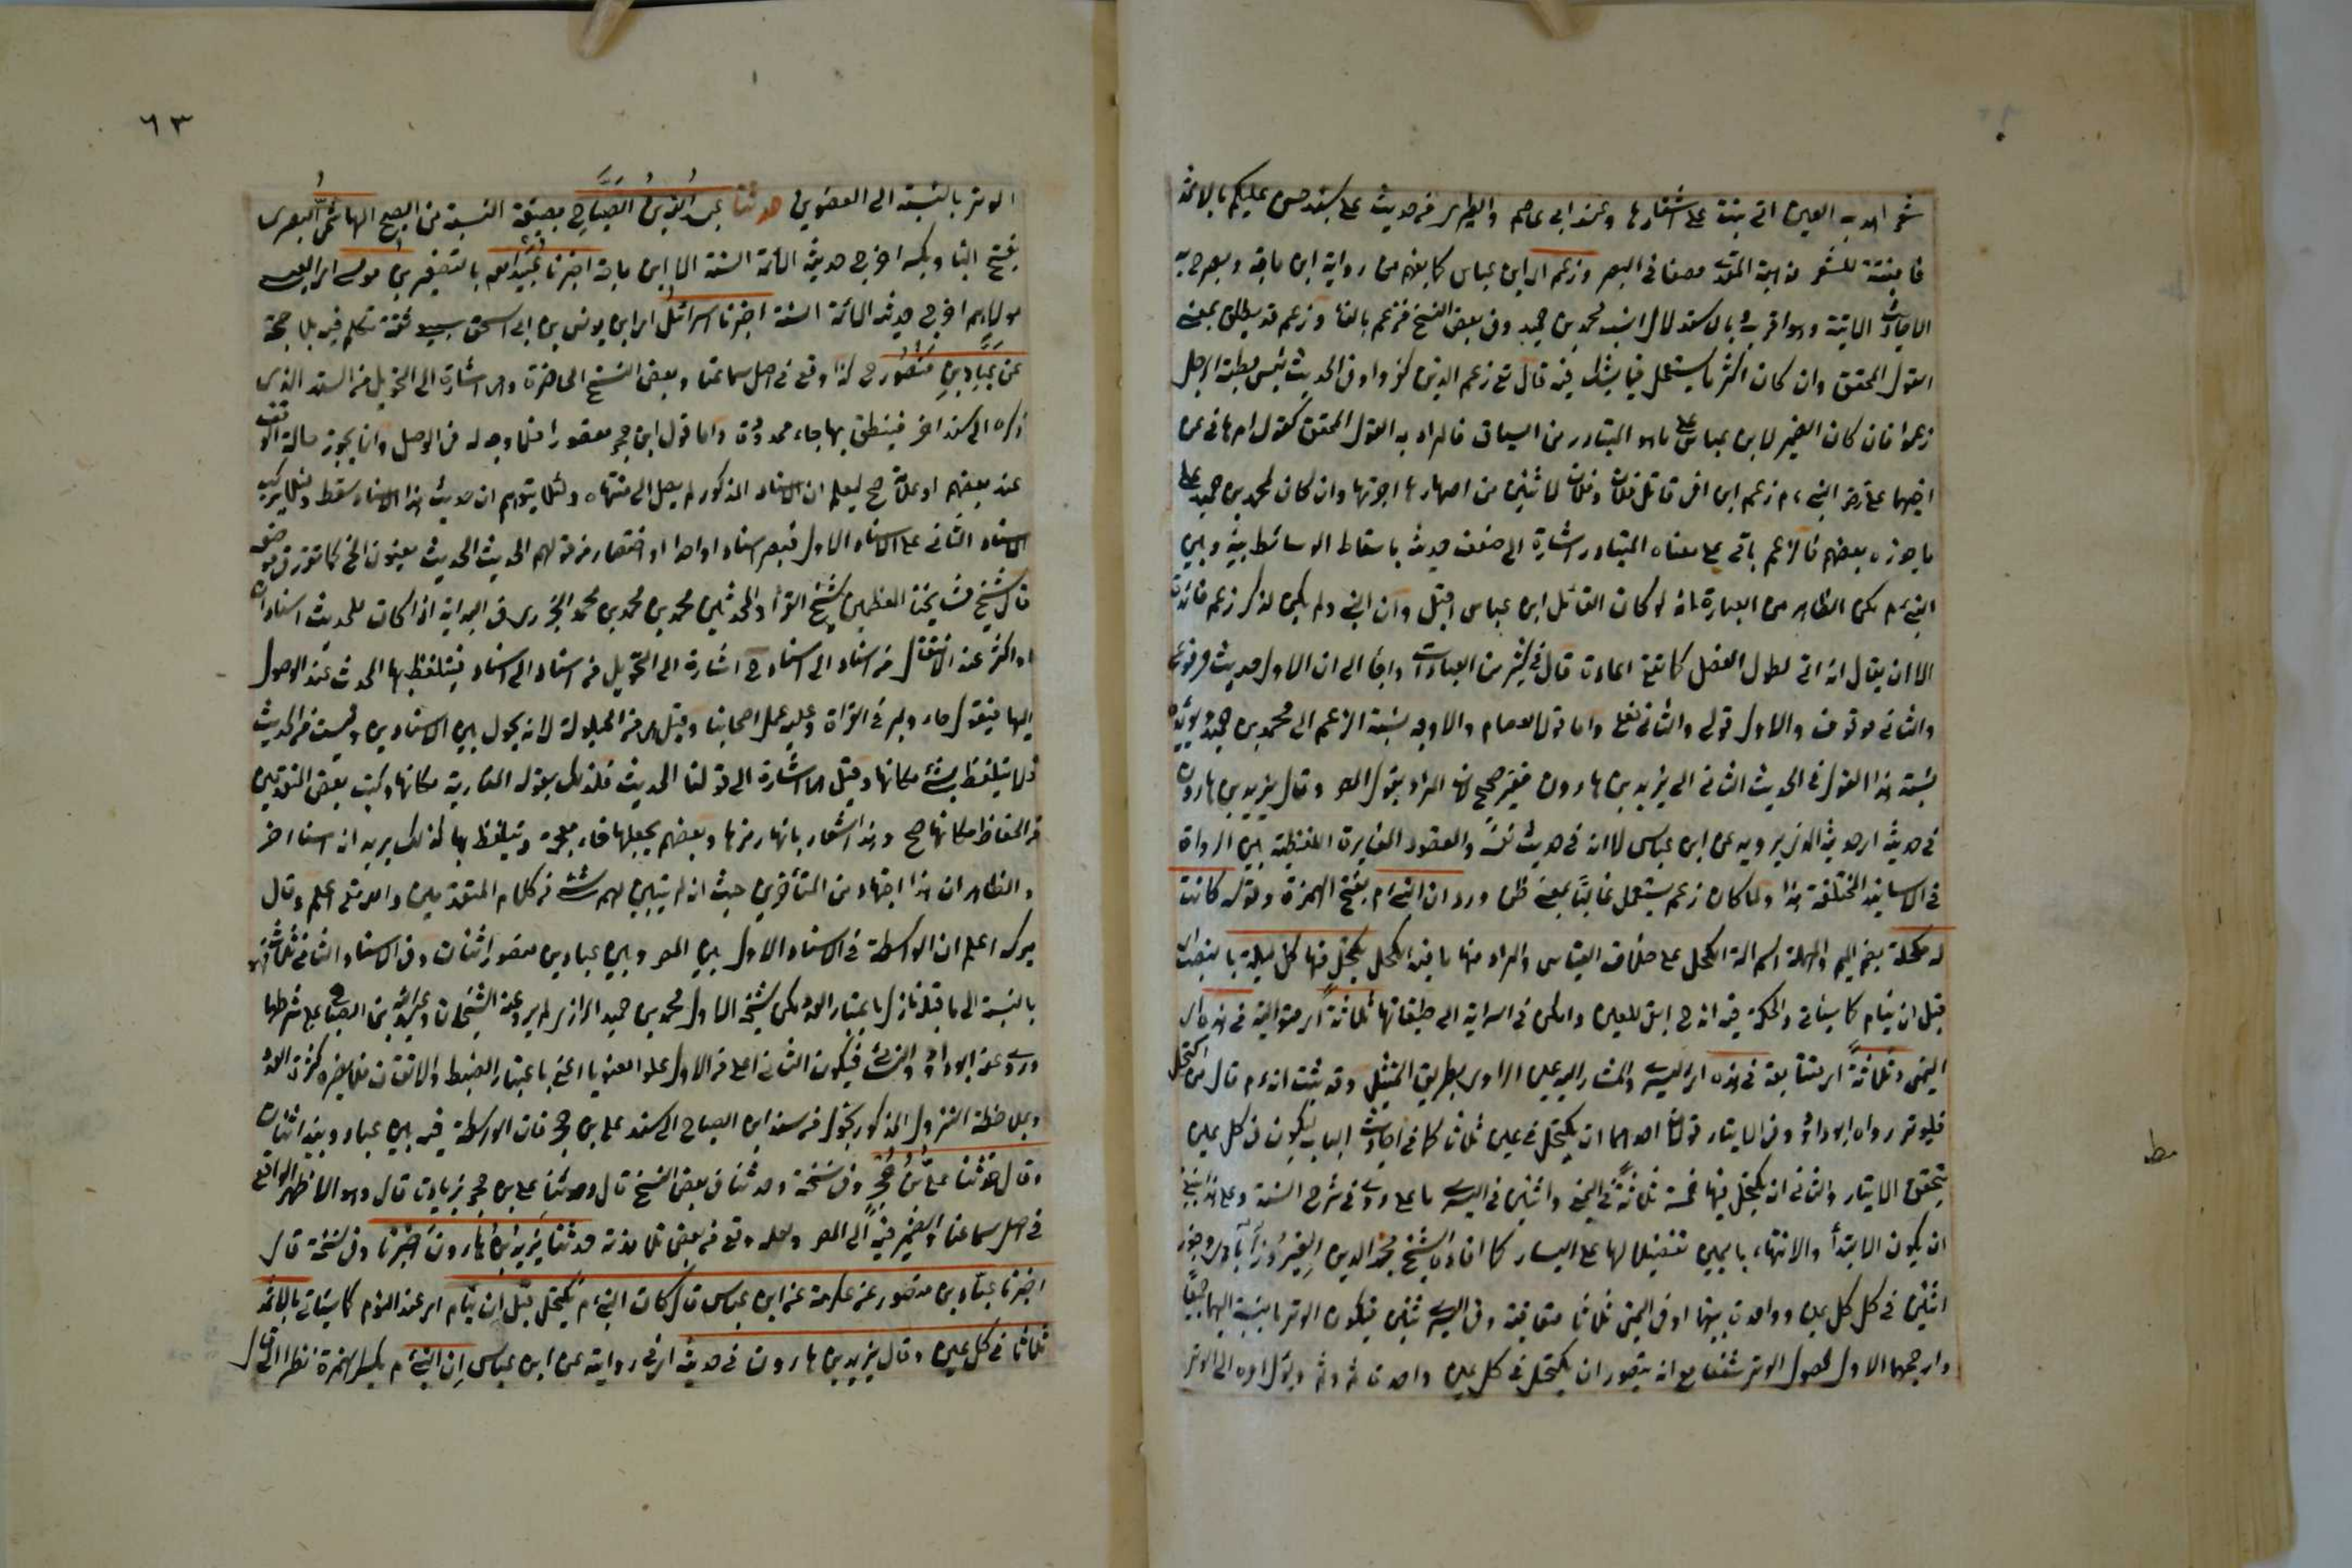 شعر اهدب العين التي تنبت على اشفارها وعند ابي عاصم والطبري من حديث علي بسند حسن عليكم بالاثمد
فانه منبتة للشعر مذهبة للقذى مصفاة في البصر وزعم اي ابن عباس كما يفهم من رواية ابن ماجة وبصرح به
الاحاديث الآتية وهو اقرب وبالاستدلال انسب لمحمد بن حميد وفي بعض النسخ فزعم بالفاء وزعم قد يطلق بمعنى
القول المحقق وان كان اكثر ما يستعمل فيما يشك فيه قال تع زعم الذين كفروا وفي الحديث بئس مطية الرجل
زعموا فان كان الضمير لابن عباس على ما هو المتبادر من السياق فالمراد به القول المحقق كقول ام هاني عن
اخيها علي رضي للنبي ءم زعم ابن امي قاتل فلان وفلان لاثنين من اصهارها اجرتهما وان كان لمحمد بن حميد على
ما جوزه بعضهم فالزعم باق على معناه المتبادر اشارة الى ضعف حديثه باسقاط الوسائط بينه وبين
النبي ءم لكن الظاهر من العبارة انه لو كان القائل ابن عباس لقيل وان النبي ولم يكن لذكر زعم فائدة
الا ان يقال انه اتى لطول الفصل كما يقع اعادة قال في كثير من العبارات وايماء الى ان الاول حديث مرفوع
والثاني موقوف والاول قولي والثاني فعلي واما قول العصام والاوجه نسبة الزعم الى محمد بن حميد ويؤيده
نسبة هذا القول في الحديث الثاني الى يزيد بن هارون فغير صحيح لان المراد بقول المص وقال يزيد بن هارون
في حديثه اي حديثه الذي يرويه عن ابن عباس لا انه في حديث نفسه والمقصود المغايرة اللفظية بين الرواة
في الاسانيد المختلفة هذا ولما كان زعم يستعمل غالبا بمعنى ظن ورد ان النبي ءم بفتح الهمزة وقوله كانت
له مكحلة بضم الميم والمهملة اسم آلة الكحل على خلاف القياس والمراد منها ما فيه الكحل يكتحل منها كل ليلة بالنصب اي
قبل ان ينام كما سيأتي والحكمة فيه انه ح ابقى للعين وامكن في السراية الى طبقاتها ثلاثة اي متوالية في هذه اي
اليمنى وثلاثة اي متتابعة في هذه اي اليسرى والمشار اليه عين الراوي بطريق التمثيل وقد ثبت انه ءم قال من اكتحل
فليوتر رواه ابو داود وفي الايتار قولان احدهما ان يكتحل في عين ثلاث كما في احاديث الباب ليكون في كل عين
يتحقق الايتار والثاني ان يكتحل فيهما خمسة ثلاثة في اليمنى واثنين في اليسرى ما على روى في شرح السنة وعلى هذا ينبغي
ان يكون الابتداء والانتهاء باليمين تفضيلا لها على اليسار كما افاده الشيخ مجد الدين الفيروزآبادي وجوز
اثنين في كل كل عين وواحدة بينهما او في اليمنى ثلاثا متعاقبة وفي اليسرى ثنتين فيكون الوتر بالنسبة اليهما جميعا
وارجحهما الاول لحصول الوتر شفعا مع انه يتصور ان يكتحل في كل عين واحدة ثم وثم ويؤل امره الى الوتر
مط
٦٣
الوتر بالنسبة الى العضوين حدثنا عبد الله بن الصباح بصيغة النسبة من الصبح الهاشمي البصري
بفتح الباء وبكسر اخرج حديثه الائمة الستة الا ابن ماجة اخبرنا عبيد الله بالتصغير بن موسى اي العبسي
مولاهم اخرج حديثه الائمة الستة اخبرنا اسرائيل اي ابن يونس بن ابي اسحق سبيعي ثقة تكلم فيه بلا حجة
عن عباد بن منصور ح كذا وقع في اصل سماعنا وبعض النسخ الحاضرة وهي اشارة الى التحويل من السند الذي
ذكره الى سند اخر فينطق بها حاء ممدودة واما قول ابن حجر مقصورا فلما وجه له في الوصل وان يجوز حالة الوقف
عند بعضهم او علامة صح ليعلم ان الاسناد المذكور لم يصل الى منتهاه ولئلا يتوهم ان حديث هذا الاسناد سقط ولئلا يركب
الاسناد الثاني على الاسناد الاول فيصير اسنادا واحدا او اختصار من قولهم الحديث الحديث يعنون الخ كما تقرر في موضعه
قال شيخ مشايخنا العظيمين شيخ القراء والمحدثين محمد بن محمد بن محمد الجزري في البداية اذا كان للحديث اسنادان
او اكثر عند الانتقال من اسناد الى اسناد ح اشارة الى التحويل من اسناد الى اسناد فيتلفظ بها المحدث عند الوصول
اليها فيقول حا ويمر في القراة وعليه عمل اصحابنا وقيل هي من الحيلولة لانه يحول بين الاسنادين وليست من الحديث
فلا يتلفظ بشيء مكانها وقيل اشارة الى قولنا الحديث فلذلك يقول المغاربة مكانها وكتب بعض المتقدمين
من الحفاظ مكانها صح وهذا اشعار بانها رمزها وبعضهم يجعلها خاء معجمة ويتلفظ بها كذلك يريد انه اسناد اخر
والظاهر ان هذا اجتهاد من المتأخرين حيث انه لم يتبين لهم شيء من كلام المتقدمين والله تع اعلم وقال
ميرك اعلم ان الواسطة في الاسناد الاول بين المص وبين عباد بن منصور اثنان وفي الاسناد الثاني ثلاثة فهو
بالنسبة الى ما قبله نازل باعتبار العدد لكن شيخه الاول محمد بن حميد الرازي لم يرو عنه الشيخان وعبد الله بن الصباح على شرطهما
وروى عنه ابو داود والنسائي فيكون الثاني اعلى من الاول علوا معنويا اعني باعتبار الضبط والاتقان فلا يضره كثرة العدد
وبملاحظة النزول المذكور تحول من سند ابن الصباح الى سند علي بن حجر فان الواسطة فيه بين عباد وبينه اثنان
وقال حدثنا علي بن حجر وفي نسخة وحدثنا وفي بعض النسخ قال وحدثنا علي بن حجر بزيادة قال وهو الاظهر الواقع
في اصل سماعنا والضمير فيه الى المص ولعله وقع من بعض تلامذته حدثنا يزيد بن هارون اخبرنا وفي نسخة قال
اخبرنا عباد بن منصور عن عكرمة عن ابن عباس قال كان النبي ءم يكتحل قبل ان ينام اي عند النوم كما سيأتي بالاثمد
ثلاثا في كل عين وقال يزيد بن هارون في حديثه اي في روايته عن ابن عباس ان النبي ءم بكسر الهمزة نظرا الى قال